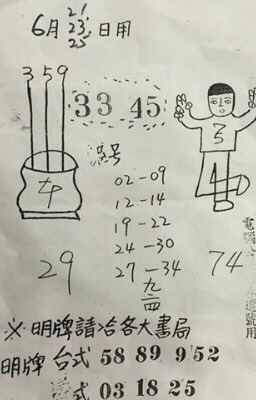 21
6月 23 日用
25
3 5 9
33 45
号
02-09
12-14
19-22
24-30
27-34
九
29
74
※明牌請洽各大書局
明牌 台式 58 89 9 52
式 03 18 25